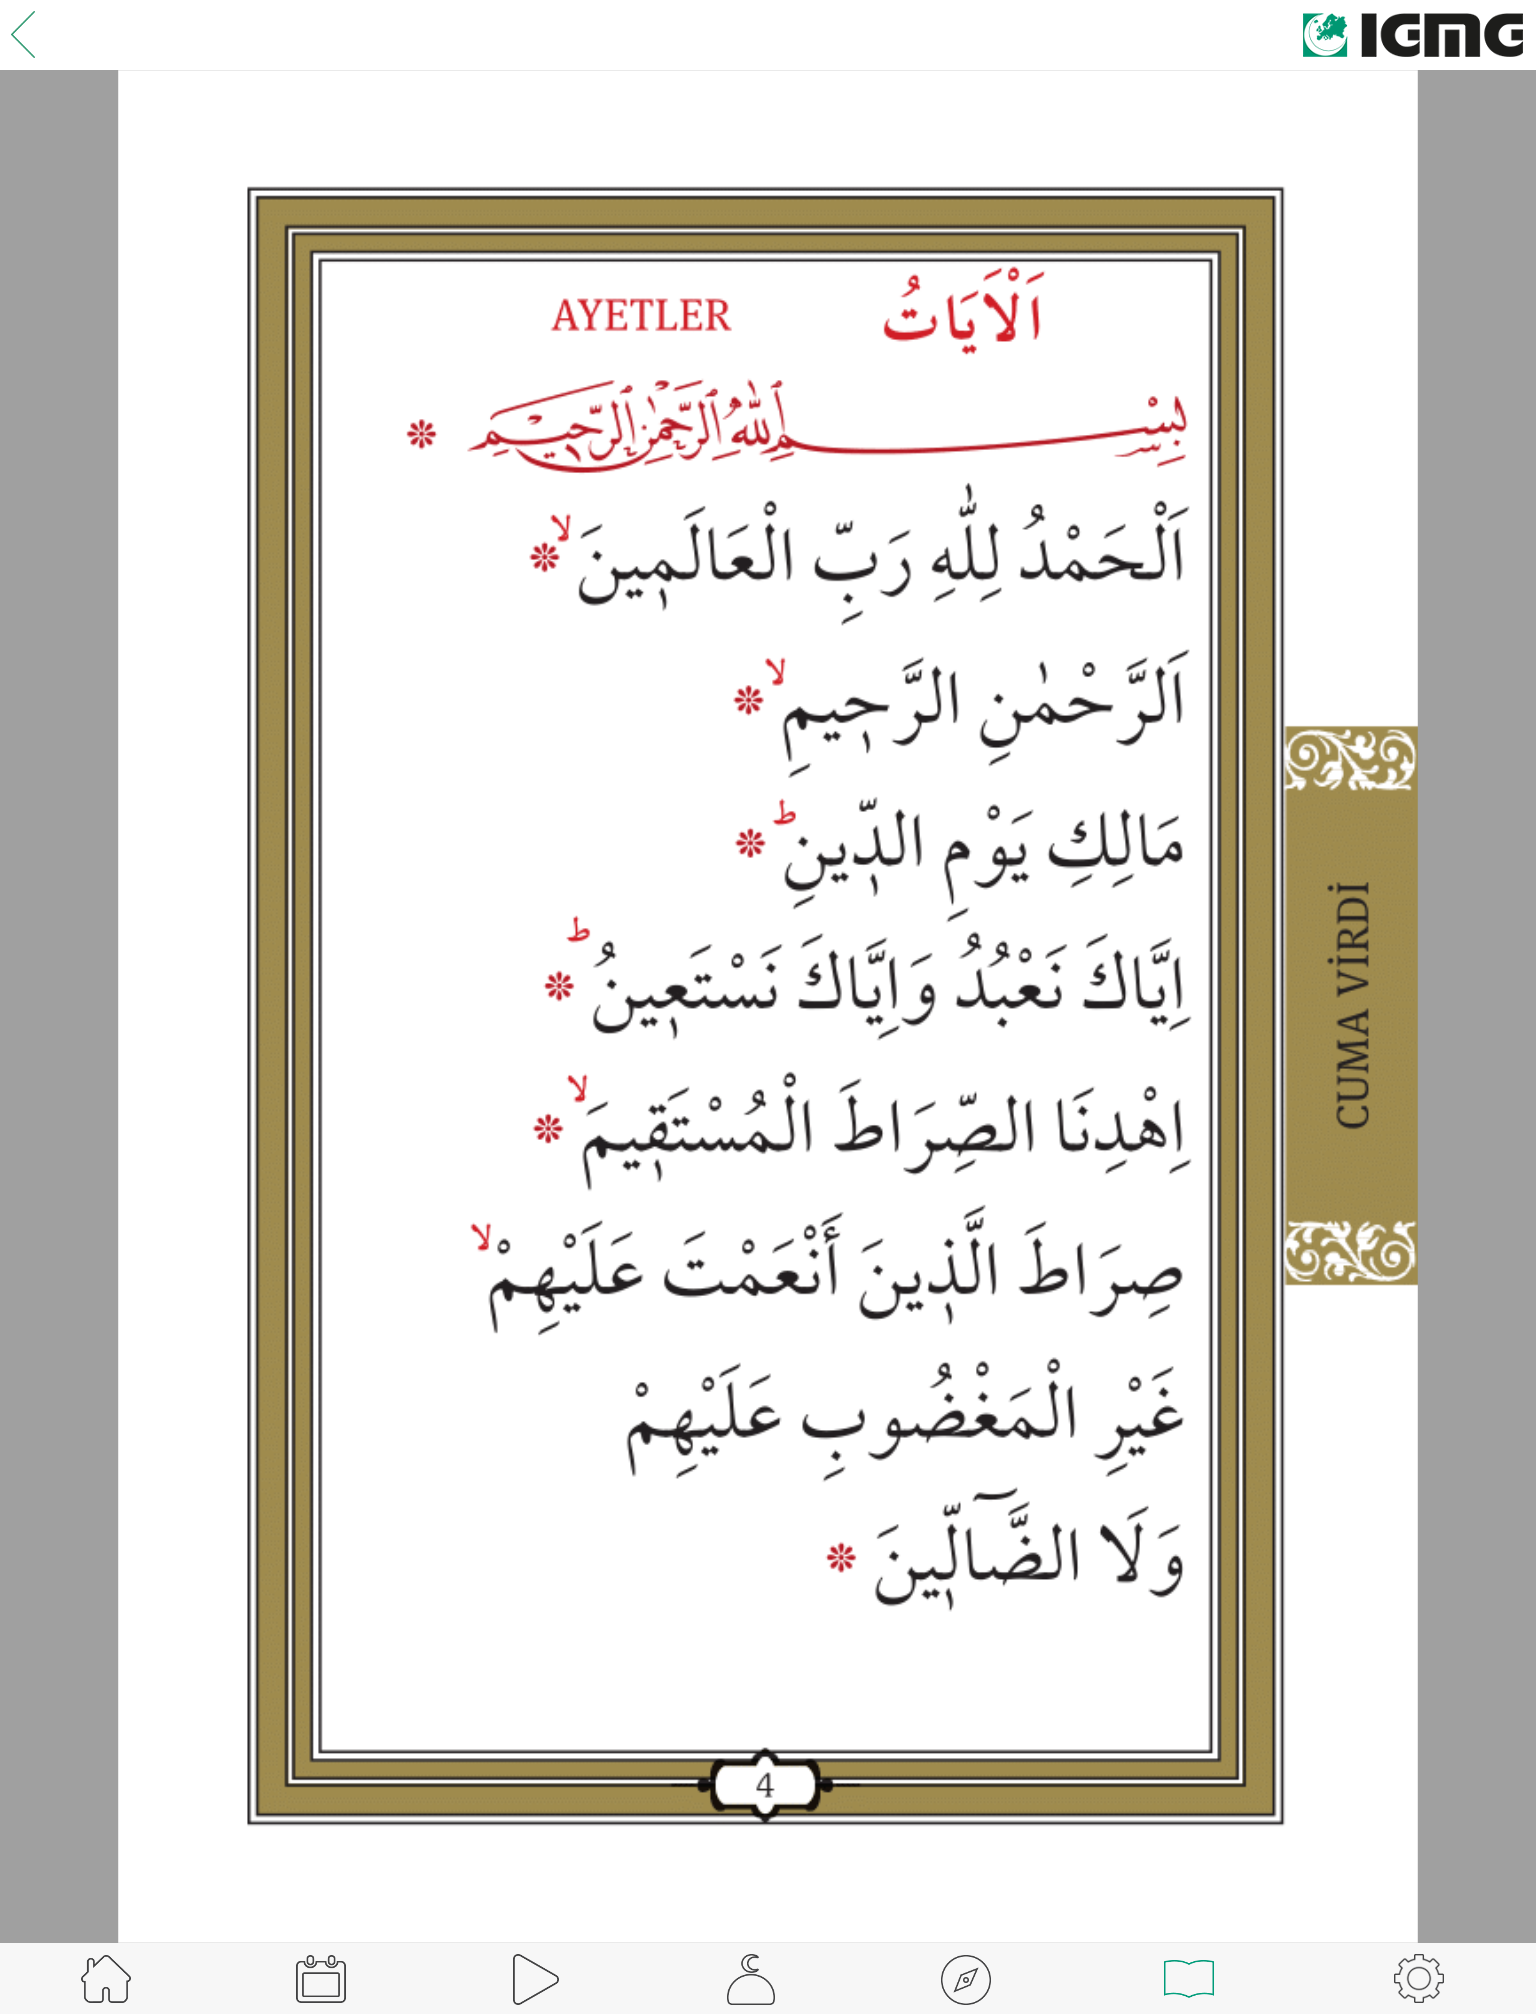 IGMG
اَلْاَيَاتُ AYETLER
بِسْمِ اللّٰهِ الرَّحْمٰنِ الرَّحِيمِ ❊
اَلْحَمْدُ لِلّٰهِ رَبِّ الْعَالَمٖينَ ۙ ❊
اَلرَّحْمٰنِ الرَّحٖيمِ ۙ ❊
مَالِكِ يَوْمِ الدّٖينِ ۜ ❊
اِيَّاكَ نَعْبُدُ وَاِيَّاكَ نَسْتَعٖينُ ۜ ❊
اِهْدِنَا الصِّرَاطَ الْمُسْتَقٖيمَ ۙ ❊
صِرَاطَ الَّذٖينَ أَنْعَمْتَ عَلَيْهِمْ ۙ
غَيْرِ الْمَغْضُوبِ عَلَيْهِمْ
وَلَا الضَّٓالّٖينَ ❊
CUMA VİRDİ
4